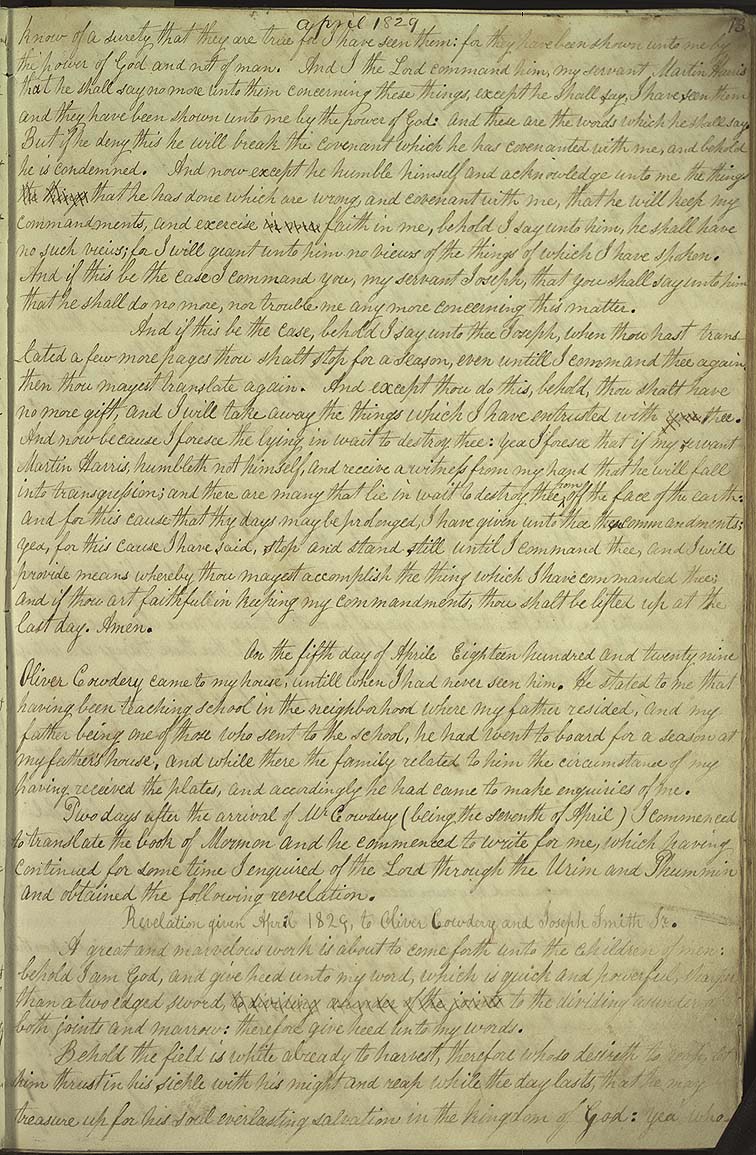 april 1829
know of a surety that they are true for I have seen them: for they have been shown unto me by
the power of God and not of man. And I the Lord command him, my servant Martin Harris
that he shall say no more unto them concerning these things, except he shall say, I have seen them
and they have been shown unto me by the power of God: and these are the words which he shall say,
But if he deny this he will break the covenant which he has covenanted with me, and behold
he is condemned. And now except he humble himself and acknowledge unto me the things
that he has done which are wrong, and covenant with me, that he will keep my
commandments, and exercise faith in me, behold I say unto him, he shall have
no such views; for I will grant unto him no views of the things of which I have spoken.
And if this be the case I command you, my servant Joseph, that you shall say unto him
that he shall do no more, nor trouble me any more concerning this matter.
And if this be the case, behold I say unto thee Joseph, when thou hast trans
lated a few more pages thou shalt stop for a season, even untill I command thee again,
then thou mayest translate again. And except thou do this, behold, thou shalt have
no more gift, and I will take away the things which I have entrusted with thee.
And now because I foresee the lying in wait to destroy thee: yea I foresee that if my servant
Martin Harris, humbleth not himself, and receive a witness from my hand that he will fall
into transgression; and there are many that lie in wait to destroy thee from off the face of the earth:
and for this cause that thy days may be prolonged, I have given unto thee these commandments;
yea, for this cause I have said, stop and stand still until I command thee, and I will
provide means whereby thou mayest accomplish the thing which I have commanded thee;
and if thou art faithful in keeping my commandments, thou shalt be lifted up at the
last day. Amen.
On the fifth day of Aprile Eighteen hundred and twenty nine
Oliver Cowdery came to my house, untill when I had never seen him. He stated to me that
having been teaching school in the neighborhood where my father resided, and my
father being one of those who sent to the school, he had went to board for a season at
my father's house, and while there the family related to him the circumstance of my
having received the plates, and accordingly he had came to make enquiries of me.
Two days after the arrival of Mr Cowdery (being the seventh of April) I commenced
to translate the book of Mormon and he commenced to write for me, which having
continued for some time I enquired of the Lord through the Urim and Thummin
and obtained the following revelation.
Revelation given April 1829, to Oliver Cowdery and Joseph Smith Jr.
A great and marvelous work is about to come forth unto the children of men:
behold I am God, and give heed unto my word, which is quick and powerful, sharper
than a two edged sword, to the dividing asunder of
both joints and marrow: therefore give heed unto my words.
Behold the field is white already to harvest, therefore whoso desireth to reap, let
him thrust in his sickle with his might and reap while the day lasts, that he may
treasure up for his soul everlasting salvation in the kingdom of God: Yea who